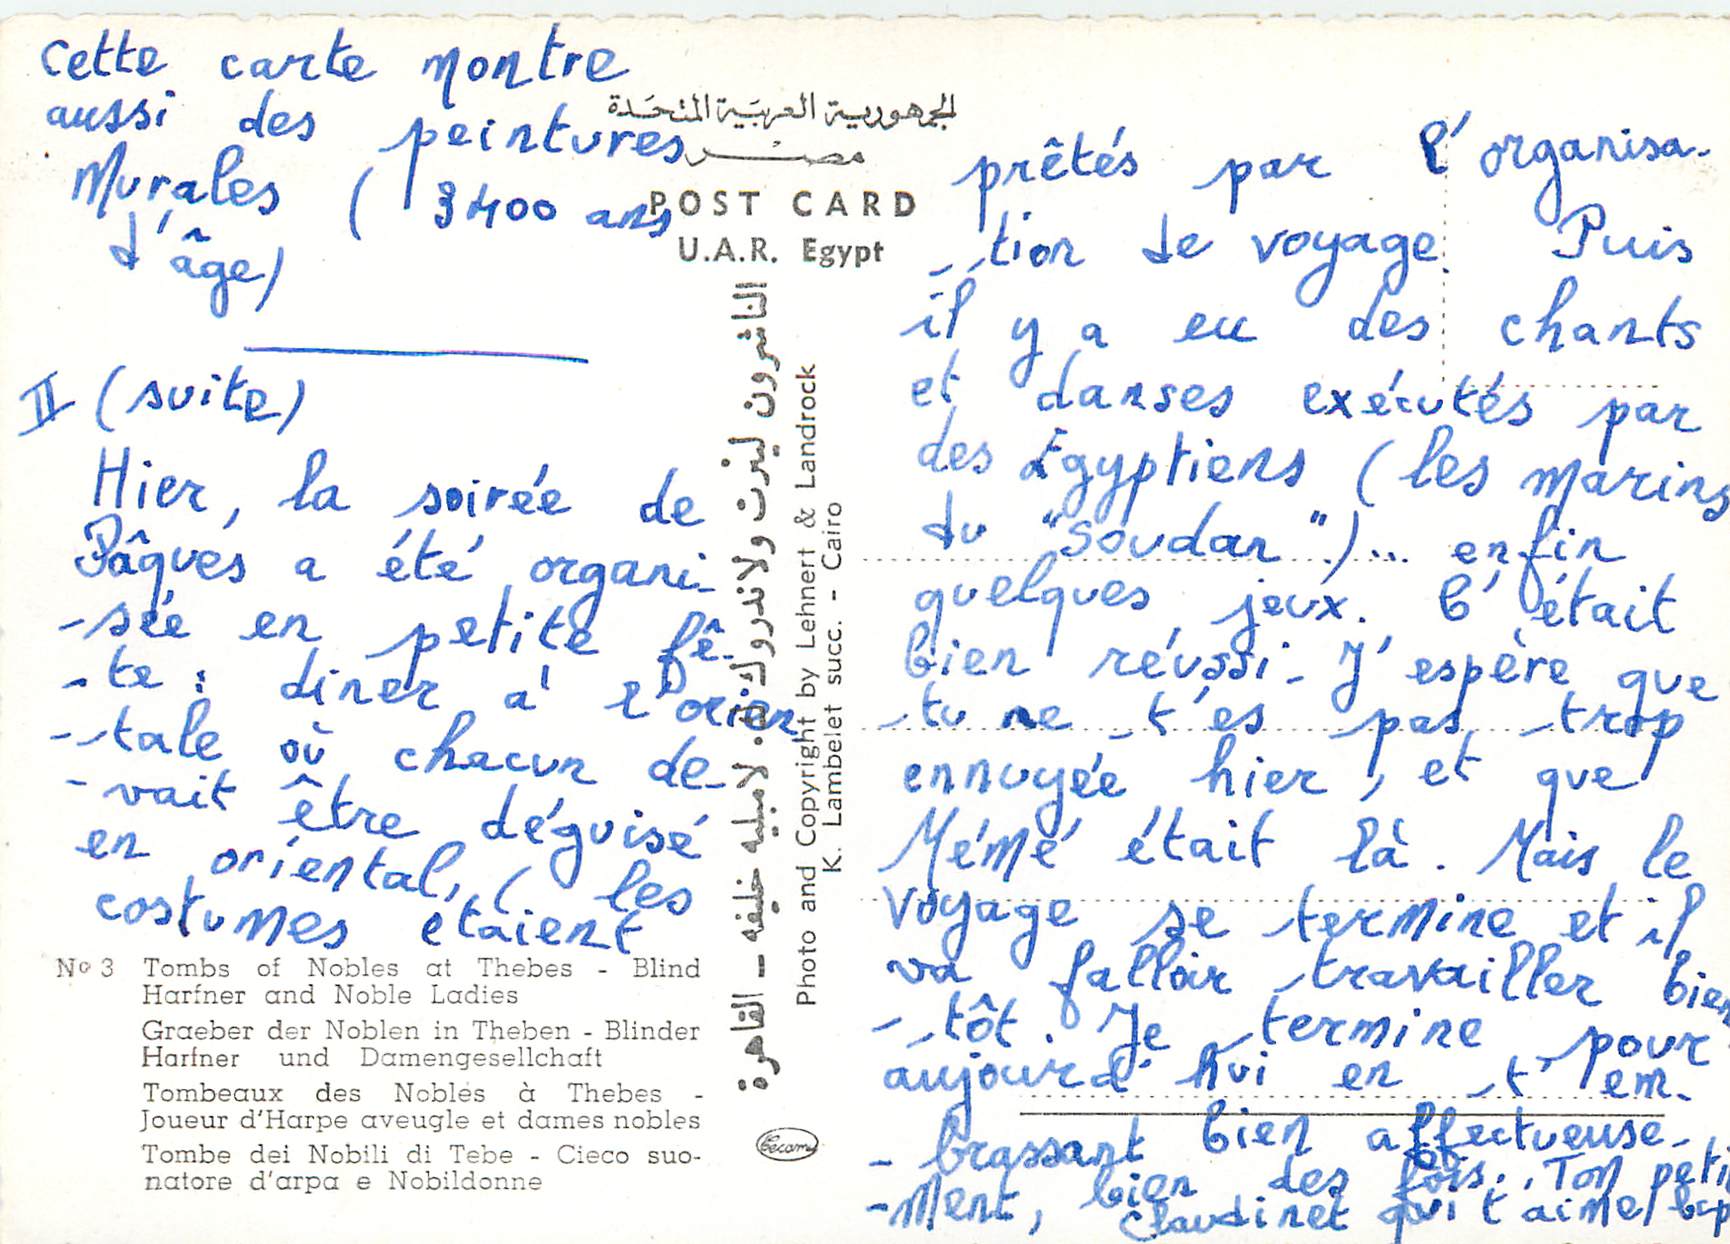 Cette carte montre
aussi des peintures
Murales ( 3400 ans
d'âge)
II (suite)
Hier, la soirée de
Pâques a été organi-
-sée en petite fê-
-te : diner à l'orien-
-tale où chacun de-
-vait être déguisé
en oriental, ( les
costumes étaient
Nº 3 Tombs of Nobles at Thebes - Blind
Harfner and Noble Ladies
Graeber der Noblen in Theben - Blinder
Harfner und Damengesellchaft
Tombeaux des Nobles à Thebes -
Joueur d'Harpe aveugle et dames nobles
Tombe dei Nobili di Tebe - Cieco suo-
natore d'arpa e Nobildonne
الجمهورية العربية المتحدة
مصر
POST CARD
U.A.R. Egypt
الناشرون لينرت ولاندروك ك. لامبليه خليفه - القاهرة
Photo and Copyright by Lehnert & Landrock
K. Lambelet succ. - Cairo
prêtés par l'organisa-
-tion de voyage. Puis
il y a eu des chants
et danses exécutés par
des Égyptiens (les marins
du "Soudan")... enfin
quelques jeux. C'était
bien réussi - J'espère que
tu ne t'es pas trop
ennuyée hier, et que
Mémé était là. Mais le
voyage se termine et il
va falloir travailler bien
-tôt. Je termine pour
aujourd'hui en t'em-
-brassant bien affectueuse-
-ment, bien des fois. Ton petit
Claudinet qui t'aime